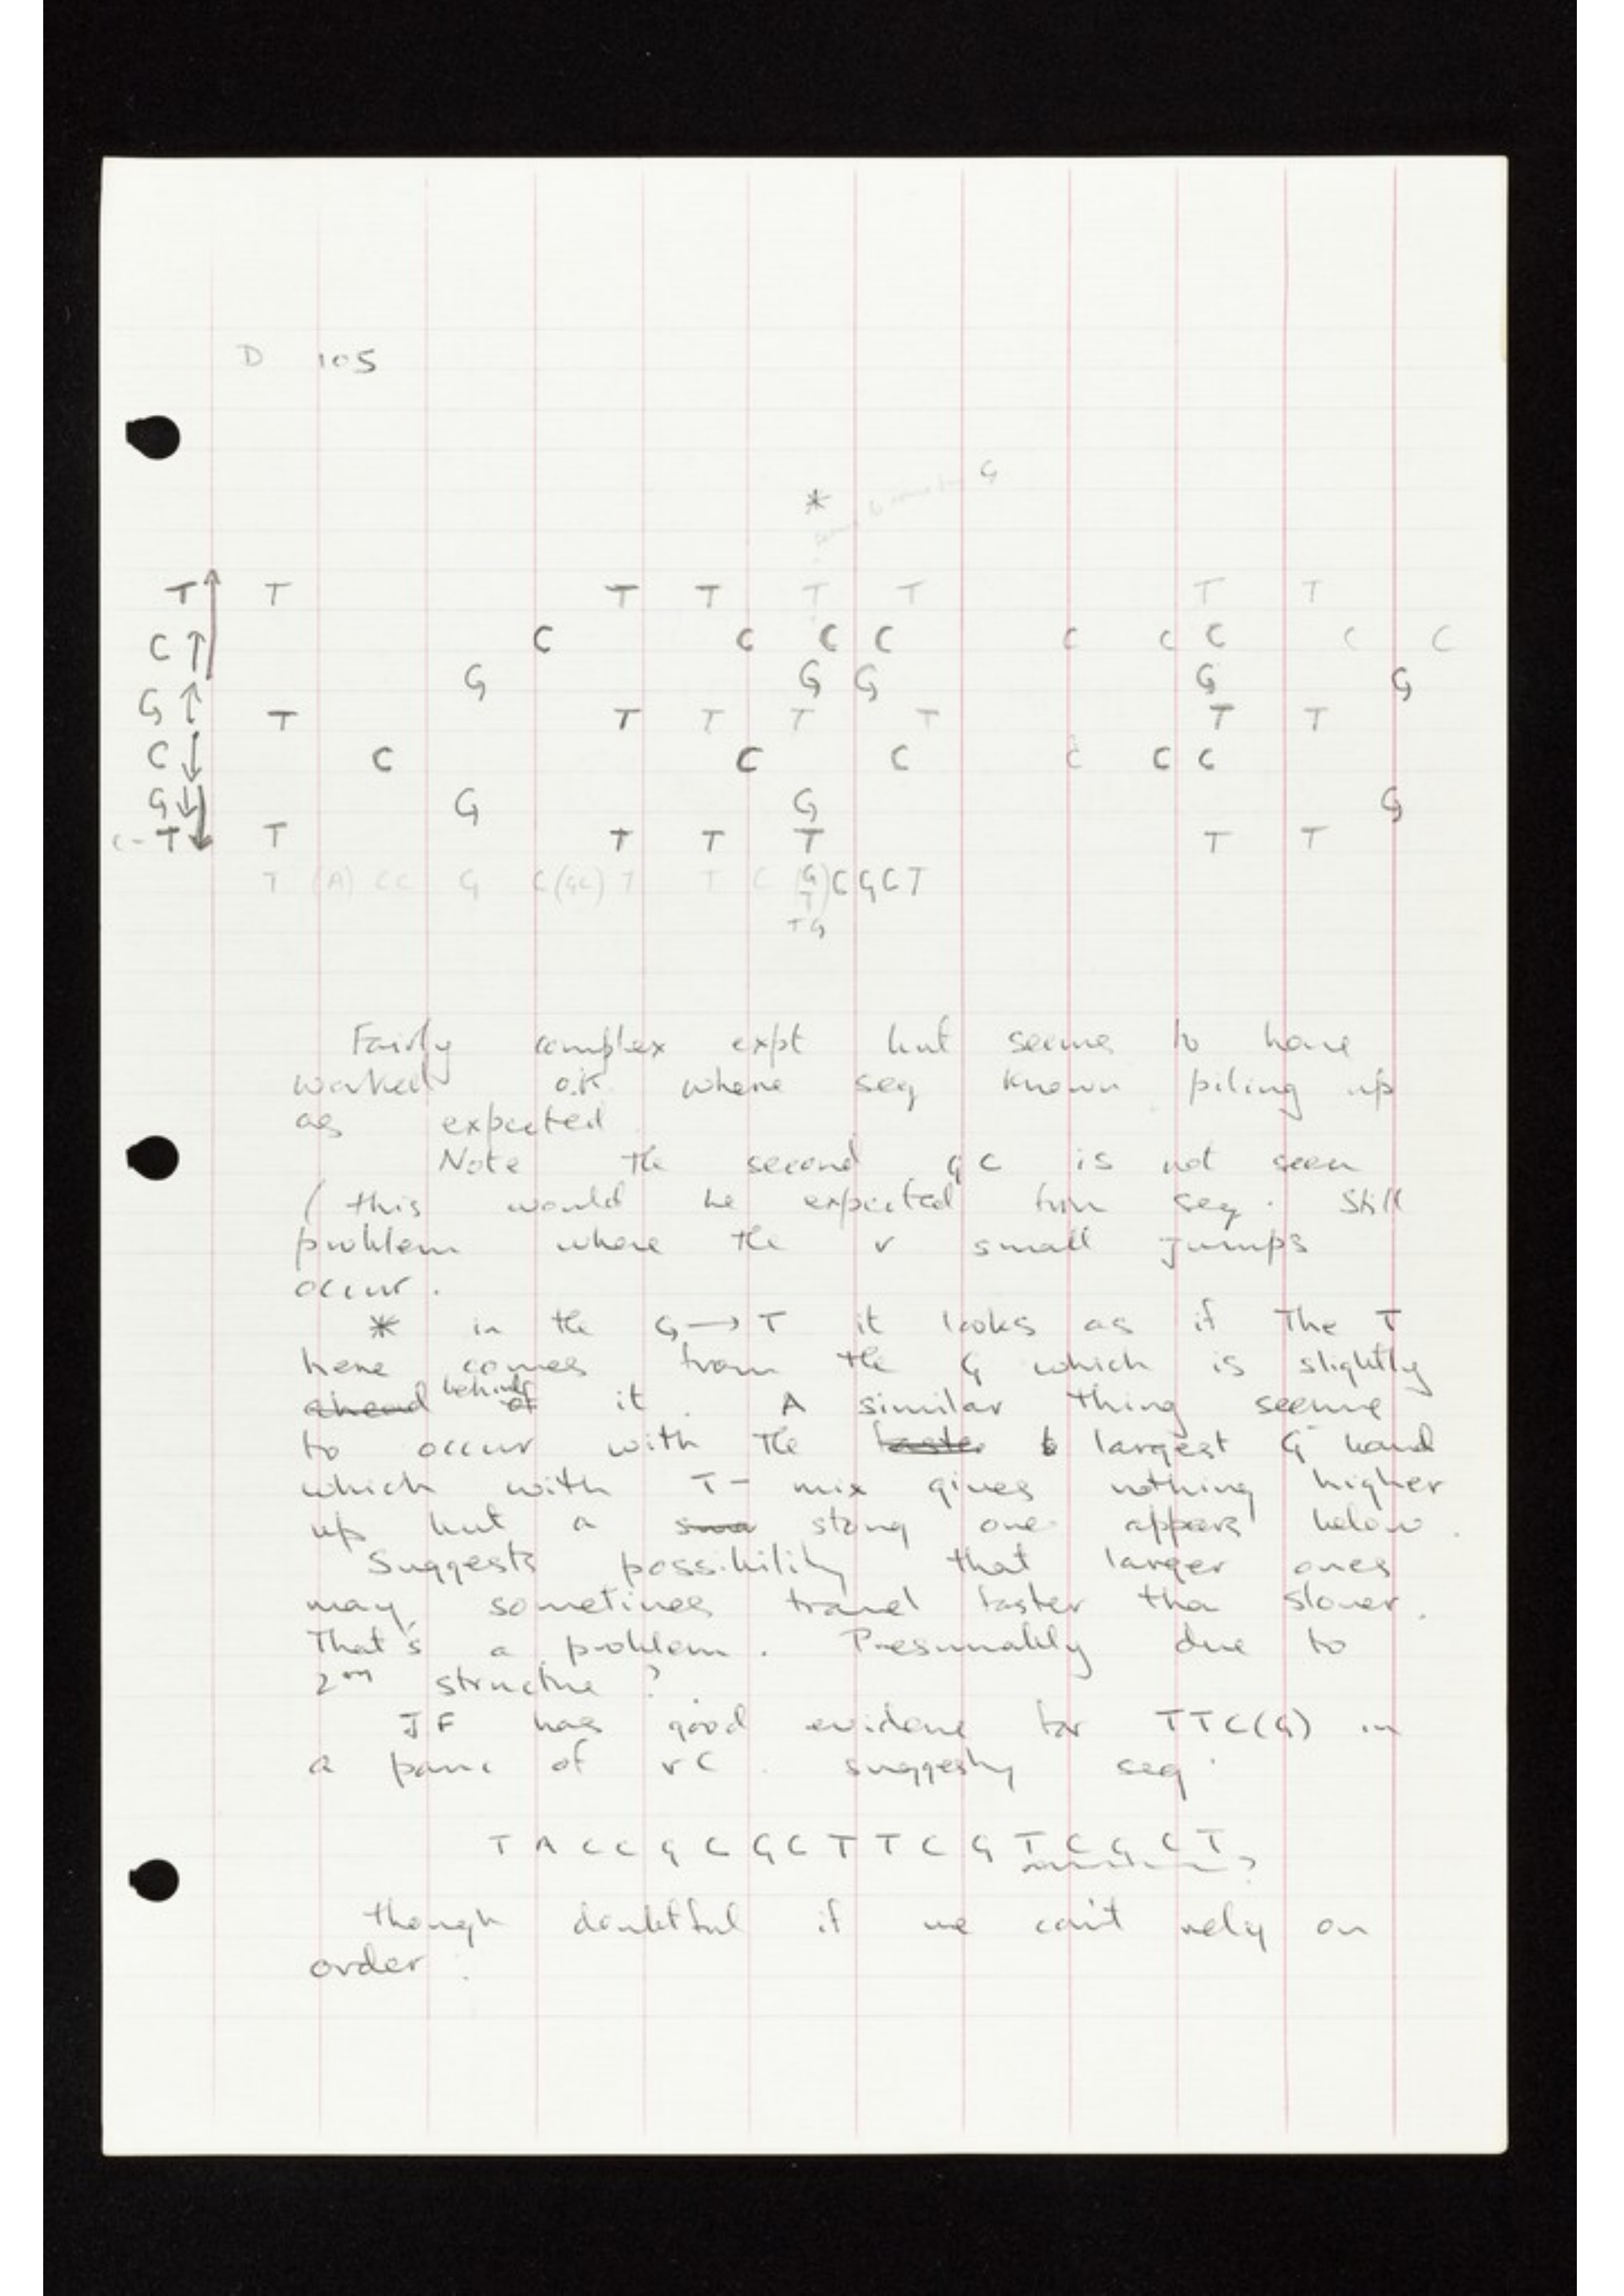 D 105
G
*
T T T T T T T T
C C C C C C C C C C
G G G G G G
T T T T T T T T
C C C C C C C
G G G G
T T T T T T T
T (A) CC G C(GC) T T C (G T) C G C T
TG
Fairly complex expt but seems to have
worked o.k. where seq known piling up
as expected
Note the second GC is not seen
(this would be expected from seq. Still
problem where the v small jumps
occur.
* in the G → T it looks as if the T
here comes from the G which is slightly
ahead behind of it. A similar thing seems
to occur with the faster b largest G band
which with T- mix gives nothing higher
up but a sma stong one appears below.
Suggests possibility that larger ones
may sometimes travel faster tha slower.
That's a problem. Presumably due to
2ary structure?
JF has good evidence for TTC(G) in
a of rC. suggesting seq.
T A C C G C G C T T C G T C G C T ?
though doubtful if we can't rely on
order.